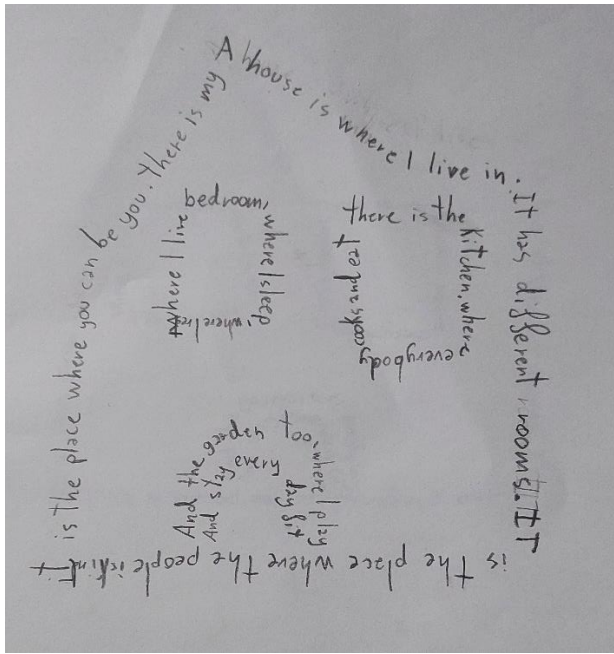 A house is where I live in. It has different rooms. IT
is the place where the people is kind. It
is the place where you can be you. There is my
bedroom,
where I sleep
, where I
where I live
there is the
kitchen, where
everybody
cooks and eat
And the garden too, where I play
And stay every day fit